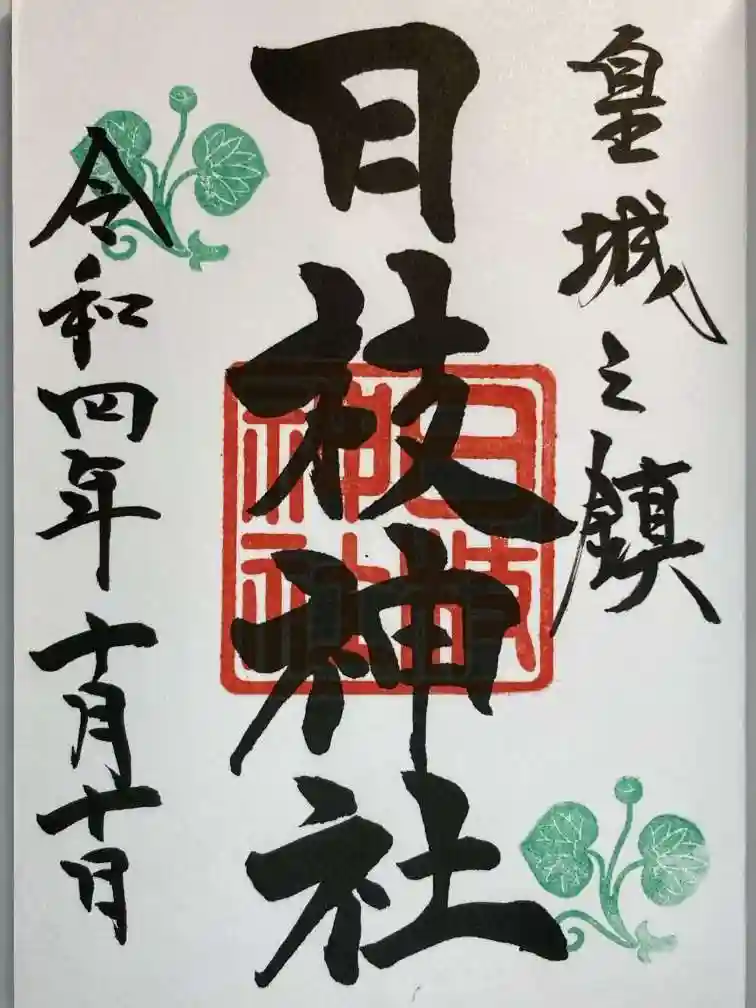 皇城之鎮
日枝神社
日枝神社
令和四年十月十日